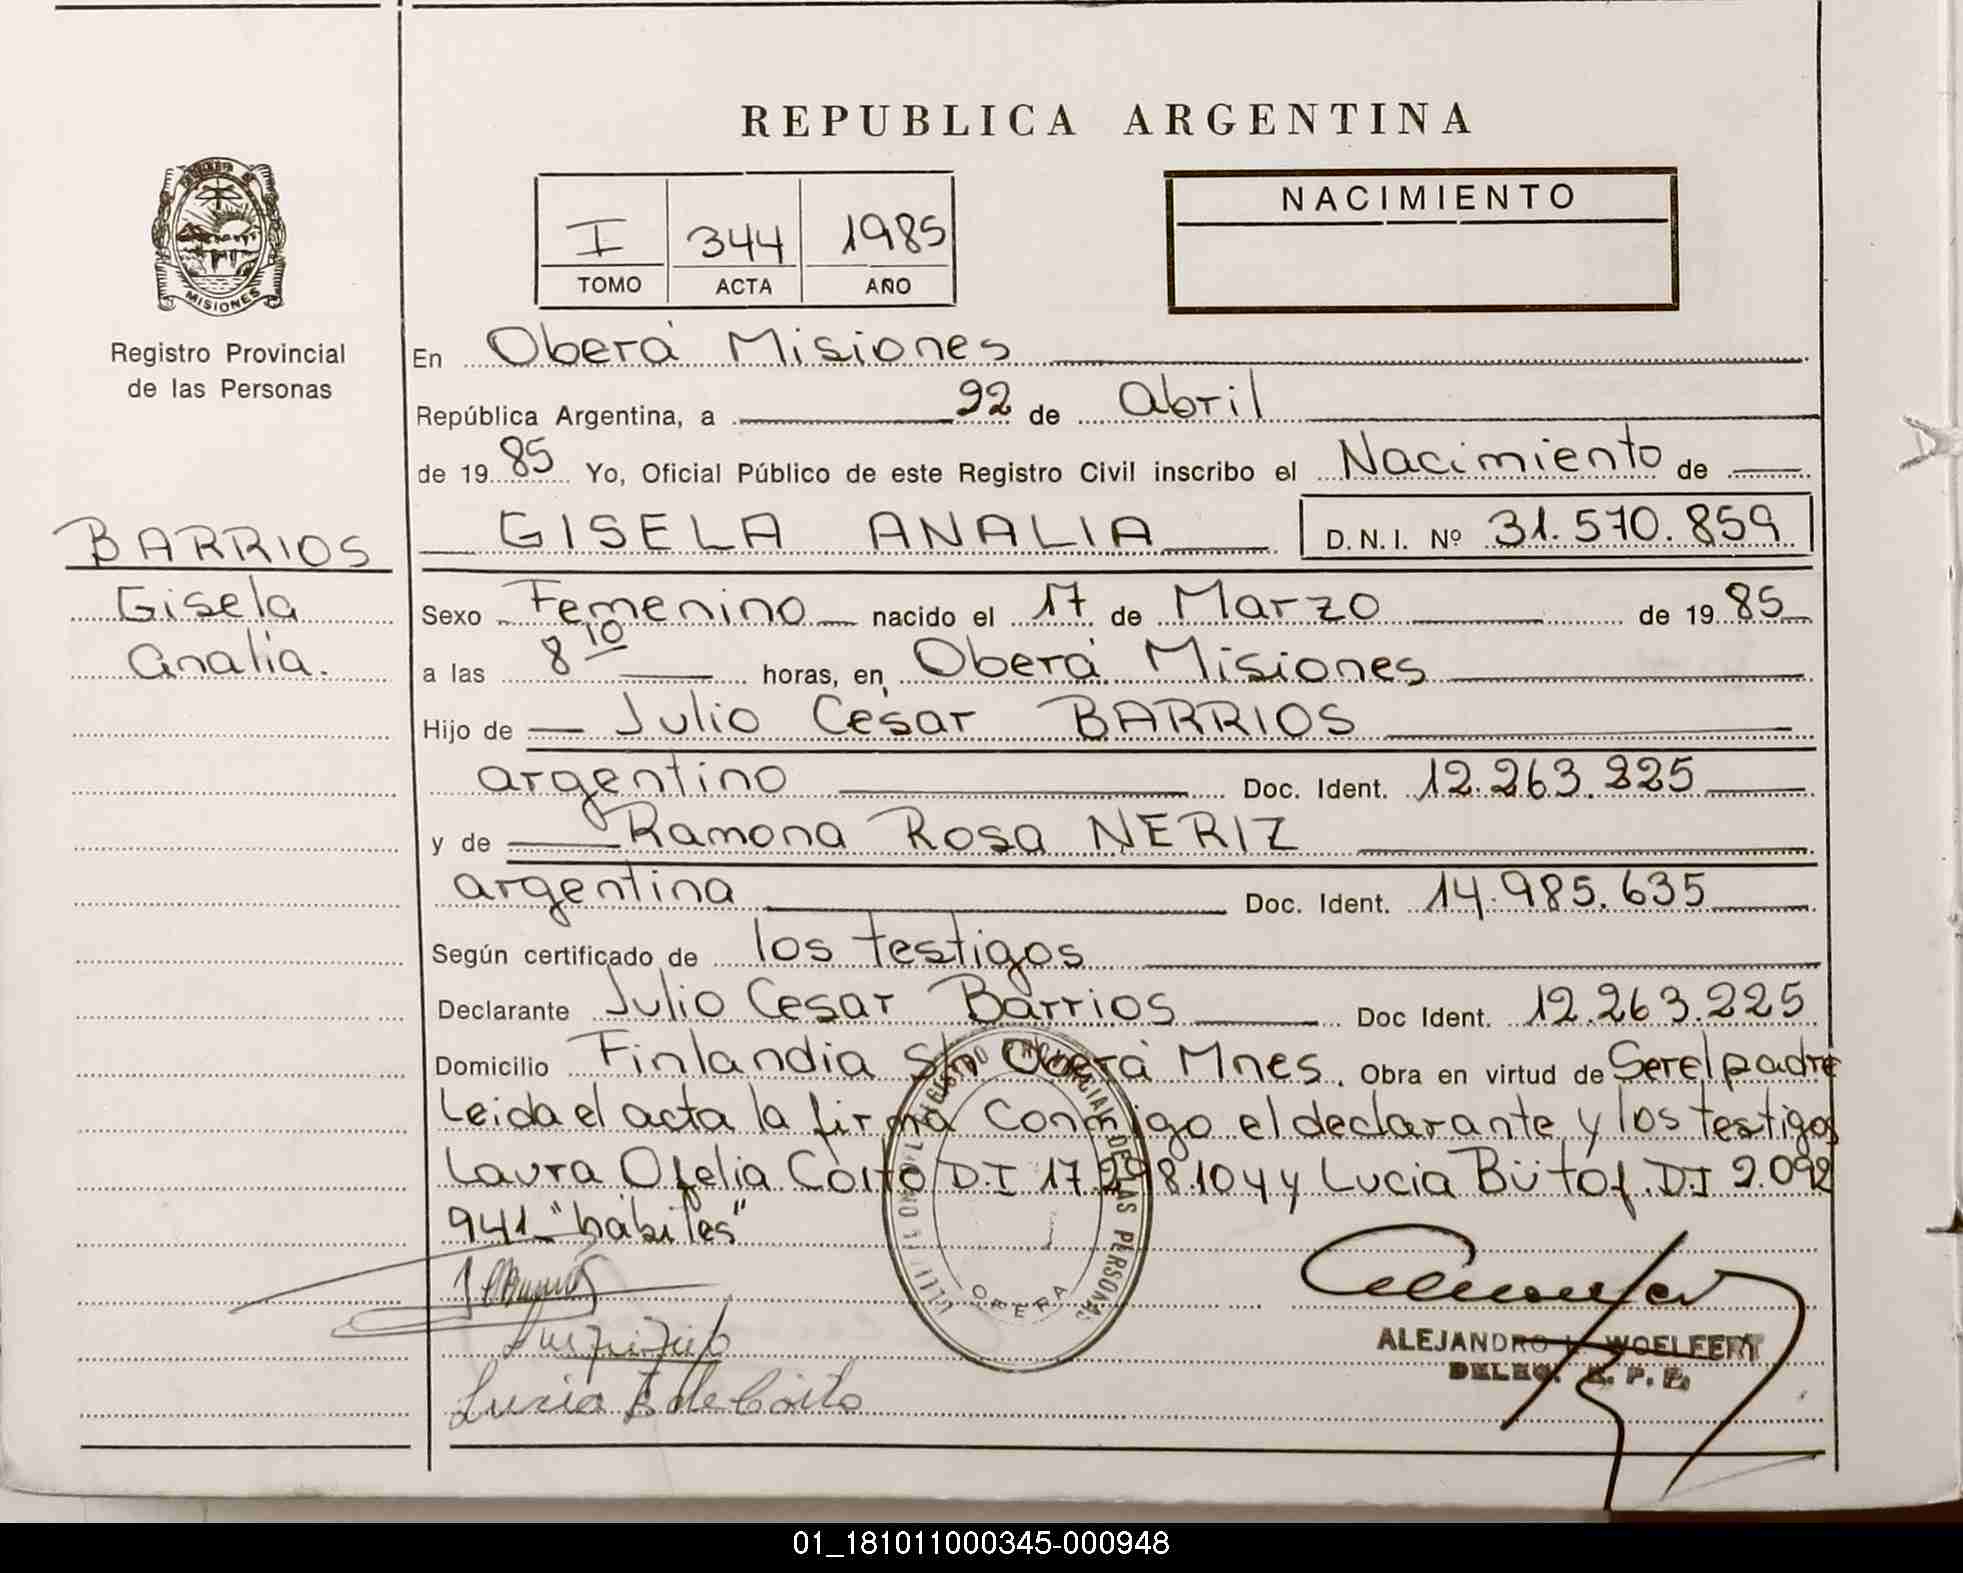 REPUBLICA ARGENTINA
MISIONES
Registro Provincial
de las Personas
I 344 1985
TOMO ACTA AÑO
NACIMIENTO
En Oberá Misiones
República Argentina, a 22 de Abril
de 1985 Yo, Oficial Público de este Registro Civil inscribo el Nacimiento de
GISELA ANALIA D.N.I. Nº 31.570.859
BARRIOS
Gisela
Analia.
Sexo Femenino nacido el 17 de Marzo de 1985
a las 8 10 horas, en Oberá Misiones
Hijo de Julio Cesar BARRIOS
argentino Doc. Ident. 12.263.225
y de Ramona Rosa NERIZ
argentina Doc. Ident. 14.985.635
Según certificado de los testigos
Declarante Julio Cesar Barrios Doc Ident. 12.263.225
Domicilio Finlandia S/n Oberá Mnes. Obra en virtud de Ser el padre
Leida el acta la firma Conmigo el declarante y los testigos
Laura Ofelia Coito D.I 17.298.104 y Lucia Bütof. D.I 2.092
941 "hábiles"
REGISTRO PROVINCIAL DE LAS PERSONAS
OBERA
Lucia B de Coito
ALEJANDRO L. WOELFERT
DELEG. R. P. P.
01_181011000345-000948